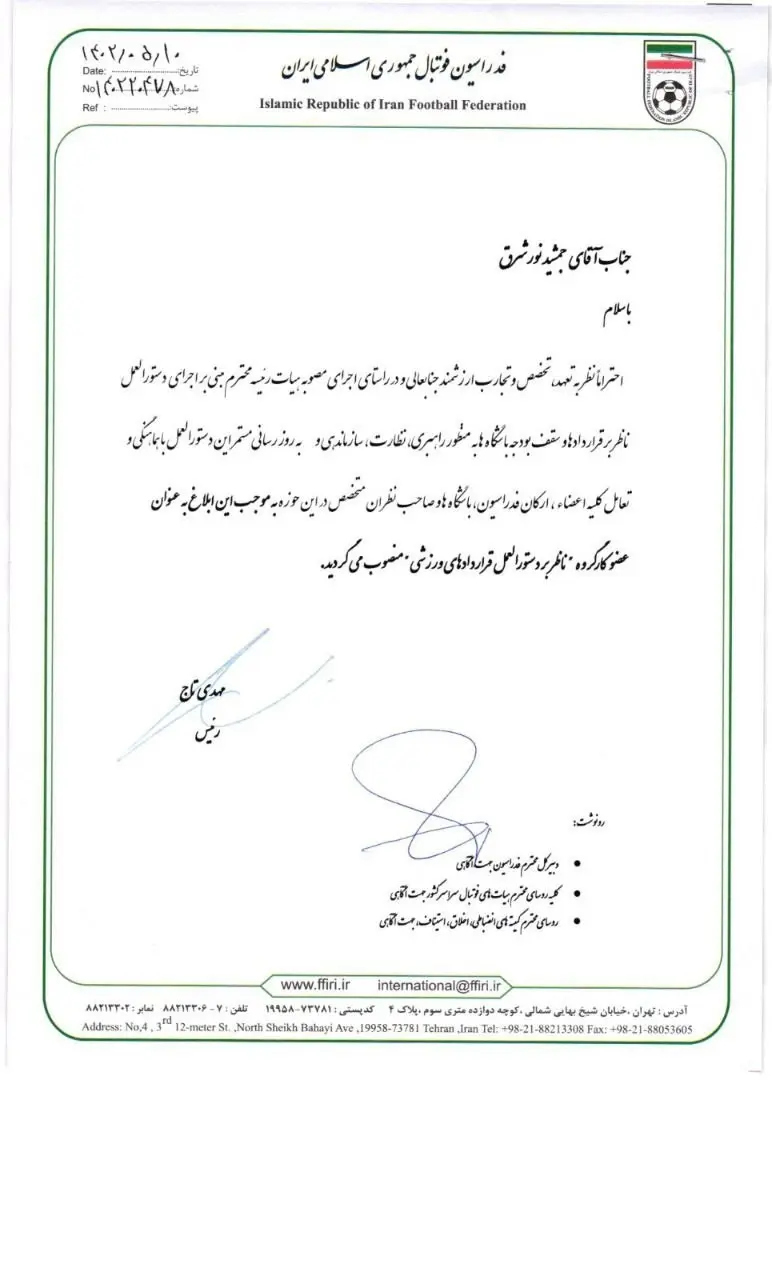 فدراسیون فوتبال جمهوری اسلامی ایران
Islamic Republic of Iran Football Federation
تاریخ: ۱۴۰۲/۰۵/۱۰
Date:
شماره: ۱۴۰۲۲۰۴۷۸
No
پیوست:
Ref :
جناب آقای جمشید نورشرق
باسلام
احتراماً نظر به تعهد، تخصص و تجارب ارزشمند جنابعالی و در راستای اجرای مصوبه هیات رئیسه محترم مبنی بر اجرای دستورالعمل
ناظر بر قراردادها و سقف بودجه باشگاه ها به منظور راهبری، نظارت، سازماندهی و به روز رسانی مستمر این دستورالعمل با هماهنگی و
تعامل کلیه اعضاء ، ارکان فدراسیون، باشگاه ها و صاحب نظران متخصص در این حوزه به موجب این ابلاغ به عنوان
عضو کارگروه "ناظر بر دستورالعمل قراردادهای ورزشی" منصوب می گردید.
مهدی تاج
رئیس
رونوشت:
• دبیرکل محترم فدراسیون جهت آگاهی
• کلیه روسای محترم هیات های فوتبال سراسر کشور جهت آگاهی
• روسای محترم کمیته های انضباطی، اخلاق، استیناف، جهت آگاهی
www.ffiri.ir international@ffiri.ir
آدرس : تهران ،خیابان شیخ بهایی شمالی ،کوچه دوازده متری سوم ،پلاک ۴ کدپستی : ۷۳۷۸۱-۱۹۹۵۸ تلفن : ۷ - ۸۸۲۱۳۳۰۶ نمابر : ۸۸۲۱۳۳۰۲
Address: No,4 , 3rd 12-meter St. ,North Sheikh Bahayi Ave ,19958-73781 Tehran ,Iran Tel: +98-21-88213308 Fax: +98-21-88053605